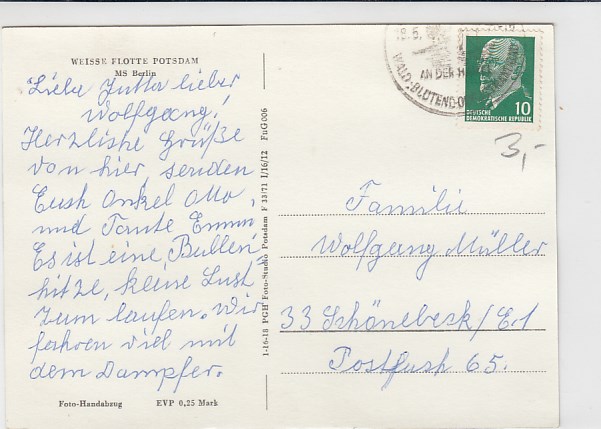 WEISSE FLOTTE POTSDAM
MS Berlin
Liebe Jutta lieber
Wolfgang!
Herzliche Grüße
von hier, senden
Euch Onkel Otto,
und Tante Emmi
Es ist eine „Bullen"
hitze, keine Lust
zum laufen. Wir
fahren viel mit
dem Dampfer.
Foto-Handabzug EVP 0,25 Mark
1-16-18 PGH Foto-Studio Potsdam F 33/71 I/16/12 FuG 006
AN DER H
DEUTSCHE
DEMOKRATISCHE REPUBLIK
10
3,-
Familie
Wolfgang Müller
33 Schönebeck/E1
Postfach 65.